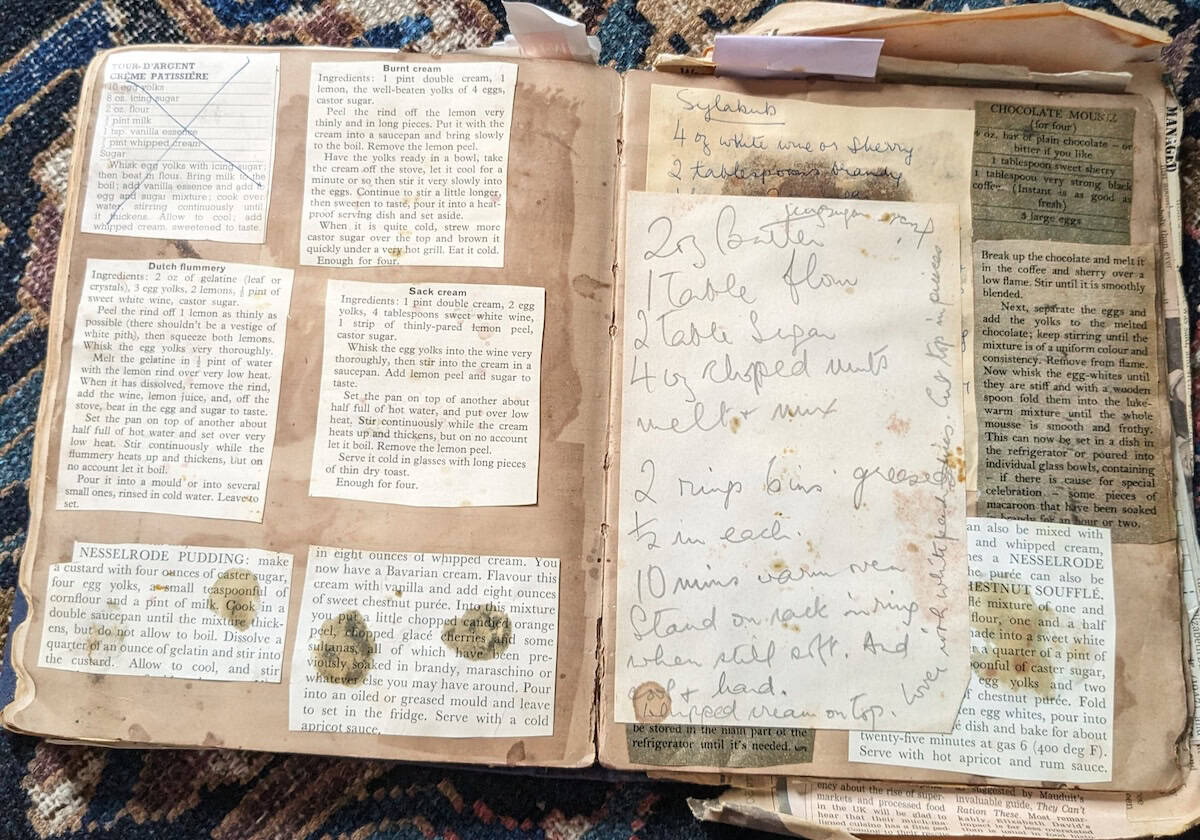 TOUR D'ARGENT
CRÈME PATISSIÈRE
10 egg yolks
8 oz. icing sugar
2 oz. flour
1 pint milk
1 tsp. vanilla essence
1 pint whipped cream
Sugar
Whisk egg yolks with icing sugar;
then beat in flour. Bring milk to the
boil; add vanilla essence and add to
egg and sugar mixture; cook over
water, stirring continuously until
it thickens. Allow to cool; add
whipped cream, sweetened to taste.
Burnt cream
Ingredients: 1 pint double cream, 1
lemon, the well-beaten yolks of 4 eggs,
castor sugar.
Peel the rind off the lemon very
thinly and in long pieces. Put it with the
cream into a saucepan and bring slowly
to the boil. Remove the lemon peel.
Have the yolks ready in a bowl, take
the cream off the stove, let it cool for a
minute or so then stir it very slowly into
the eggs. Continue to stir a little longer,
then sweeten to taste, pour it into a heat-
proof serving dish and set aside.
When it is quite cold, strew more
castor sugar over the top and brown it
quickly under a very hot grill. Eat it cold.
Enough for four.
Dutch flummery
Ingredients: 2 oz of gelatine (leaf or
crystals), 3 egg yolks, 2 lemons, ½ pint of
sweet white wine, castor sugar.
Peel the rind off 1 lemon as thinly as
possible (there shouldn't be a vestige of
white pith), then squeeze both lemons.
Whisk the egg yolks very thoroughly.
Melt the gelatine in ½ pint of water
with the lemon rind over very low heat.
When it has dissolved, remove the rind,
add the wine, lemon juice, and, off the
stove, beat in the egg and sugar to taste.
Set the pan on top of another about
half full of hot water and set over very
low heat. Stir continuously while the
flummery heats up and thickens, but on
no account let it boil.
Pour it into a mould or into several
small ones, rinsed in cold water. Leave to
set.
Sack cream
Ingredients: 1 pint double cream, 2 egg
yolks, 4 tablespoons sweet white wine,
1 strip of thinly-pared lemon peel,
castor sugar.
Whisk the egg yolks into the wine very
thoroughly, then stir into the cream in a
saucepan. Add lemon peel and sugar to
taste.
Set the pan on top of another about
half full of hot water, and put over low
heat. Stir continuously while the cream
heats up and thickens, but on no account
let it boil. Remove the lemon peel.
Serve it cold in glasses with long pieces
of thin dry toast.
Enough for four.
NESSELRODE PUDDING: make
a custard with four ounces of caster sugar,
four egg yolks, a small teaspoonful of
cornflour and a pint of milk. Cook in a
double saucepan until the mixture thick-
ens, but do not allow to boil. Dissolve a
quarter of an ounce of gelatin and stir into
the custard. Allow to cool, and stir
in eight ounces of whipped cream. You
now have a Bavarian cream. Flavour this
cream with vanilla and add eight ounces
of sweet chestnut purée. Into the mixture
you put a little chopped candied orange
peel, chopped glacé cherries and some
sultanas, all of which have been pre-
viously soaked in brandy, maraschino or
whatever else you may have around. Pour
into an oiled or greased mould and leave
to set in the fridge. Serve with a cold
apricot sauce.
Sylabub
4 oz white wine or Sherry
2 tablespoons brandy
2oz Butter
1 Table flour
2 Table Sugar
4 oz chopped nuts
melt & mix
2 rings 6ins greased
½ in each.
10 mins warm oven
Stand on rack in ring
when still soft. And
cool & hard.
Whipped cream on top.
Cover with white peach slices Cut top in pieces
be stored in the main part of the
refrigerator until it's needed.
CHOCOLATE MOUSSE
(for four)
4 oz. bar of plain chocolate – or
bitter if you like
1 tablespoon sweet sherry
1 tablespoon very strong black
coffee (Instant is as good as
fresh)
3 large eggs
Break up the chocolate and melt it
in the coffee and sherry over a
low flame. Stir until it is smoothly
blended.
Next, separate the eggs and
add the yolks to the melted
chocolate; keep stirring until the
mixture is of a uniform colour and
consistency. Remove from flame.
Now whisk the egg-whites until
they are stiff and with a wooden
spoon fold them into the luke-
warm mixture until the whole
mousse is smooth and frothy.
This can now be set in a dish in
the refrigerator or poured into
individual glass bowls, containing
– if there is cause for special
celebration – some pieces of
macaroon that have been soaked
in brandy for an hour or two.
an also be mixed with
and whipped cream,
es a NESSELRODE
he purée can also be
HESTNUT SOUFFLÉ.
mixture of one and
flour, one and a half
made into a sweet white
a quarter of a pint of
oonful of caster sugar,
egg yolks and two
f chestnut purée. Fold
en egg whites, pour into
é dish and bake for about
twenty-five minutes at gas 6 (400 deg F).
Serve with hot apricot and rum sauce.
MANGER
ency about the rise of super-
markets and processed food
in the UK will be glad to
hear that their much-ma-
suggested by Mauduit's
invaluable guide, They Can't
Ration These. Most remar-
kably, Elizabeth David's